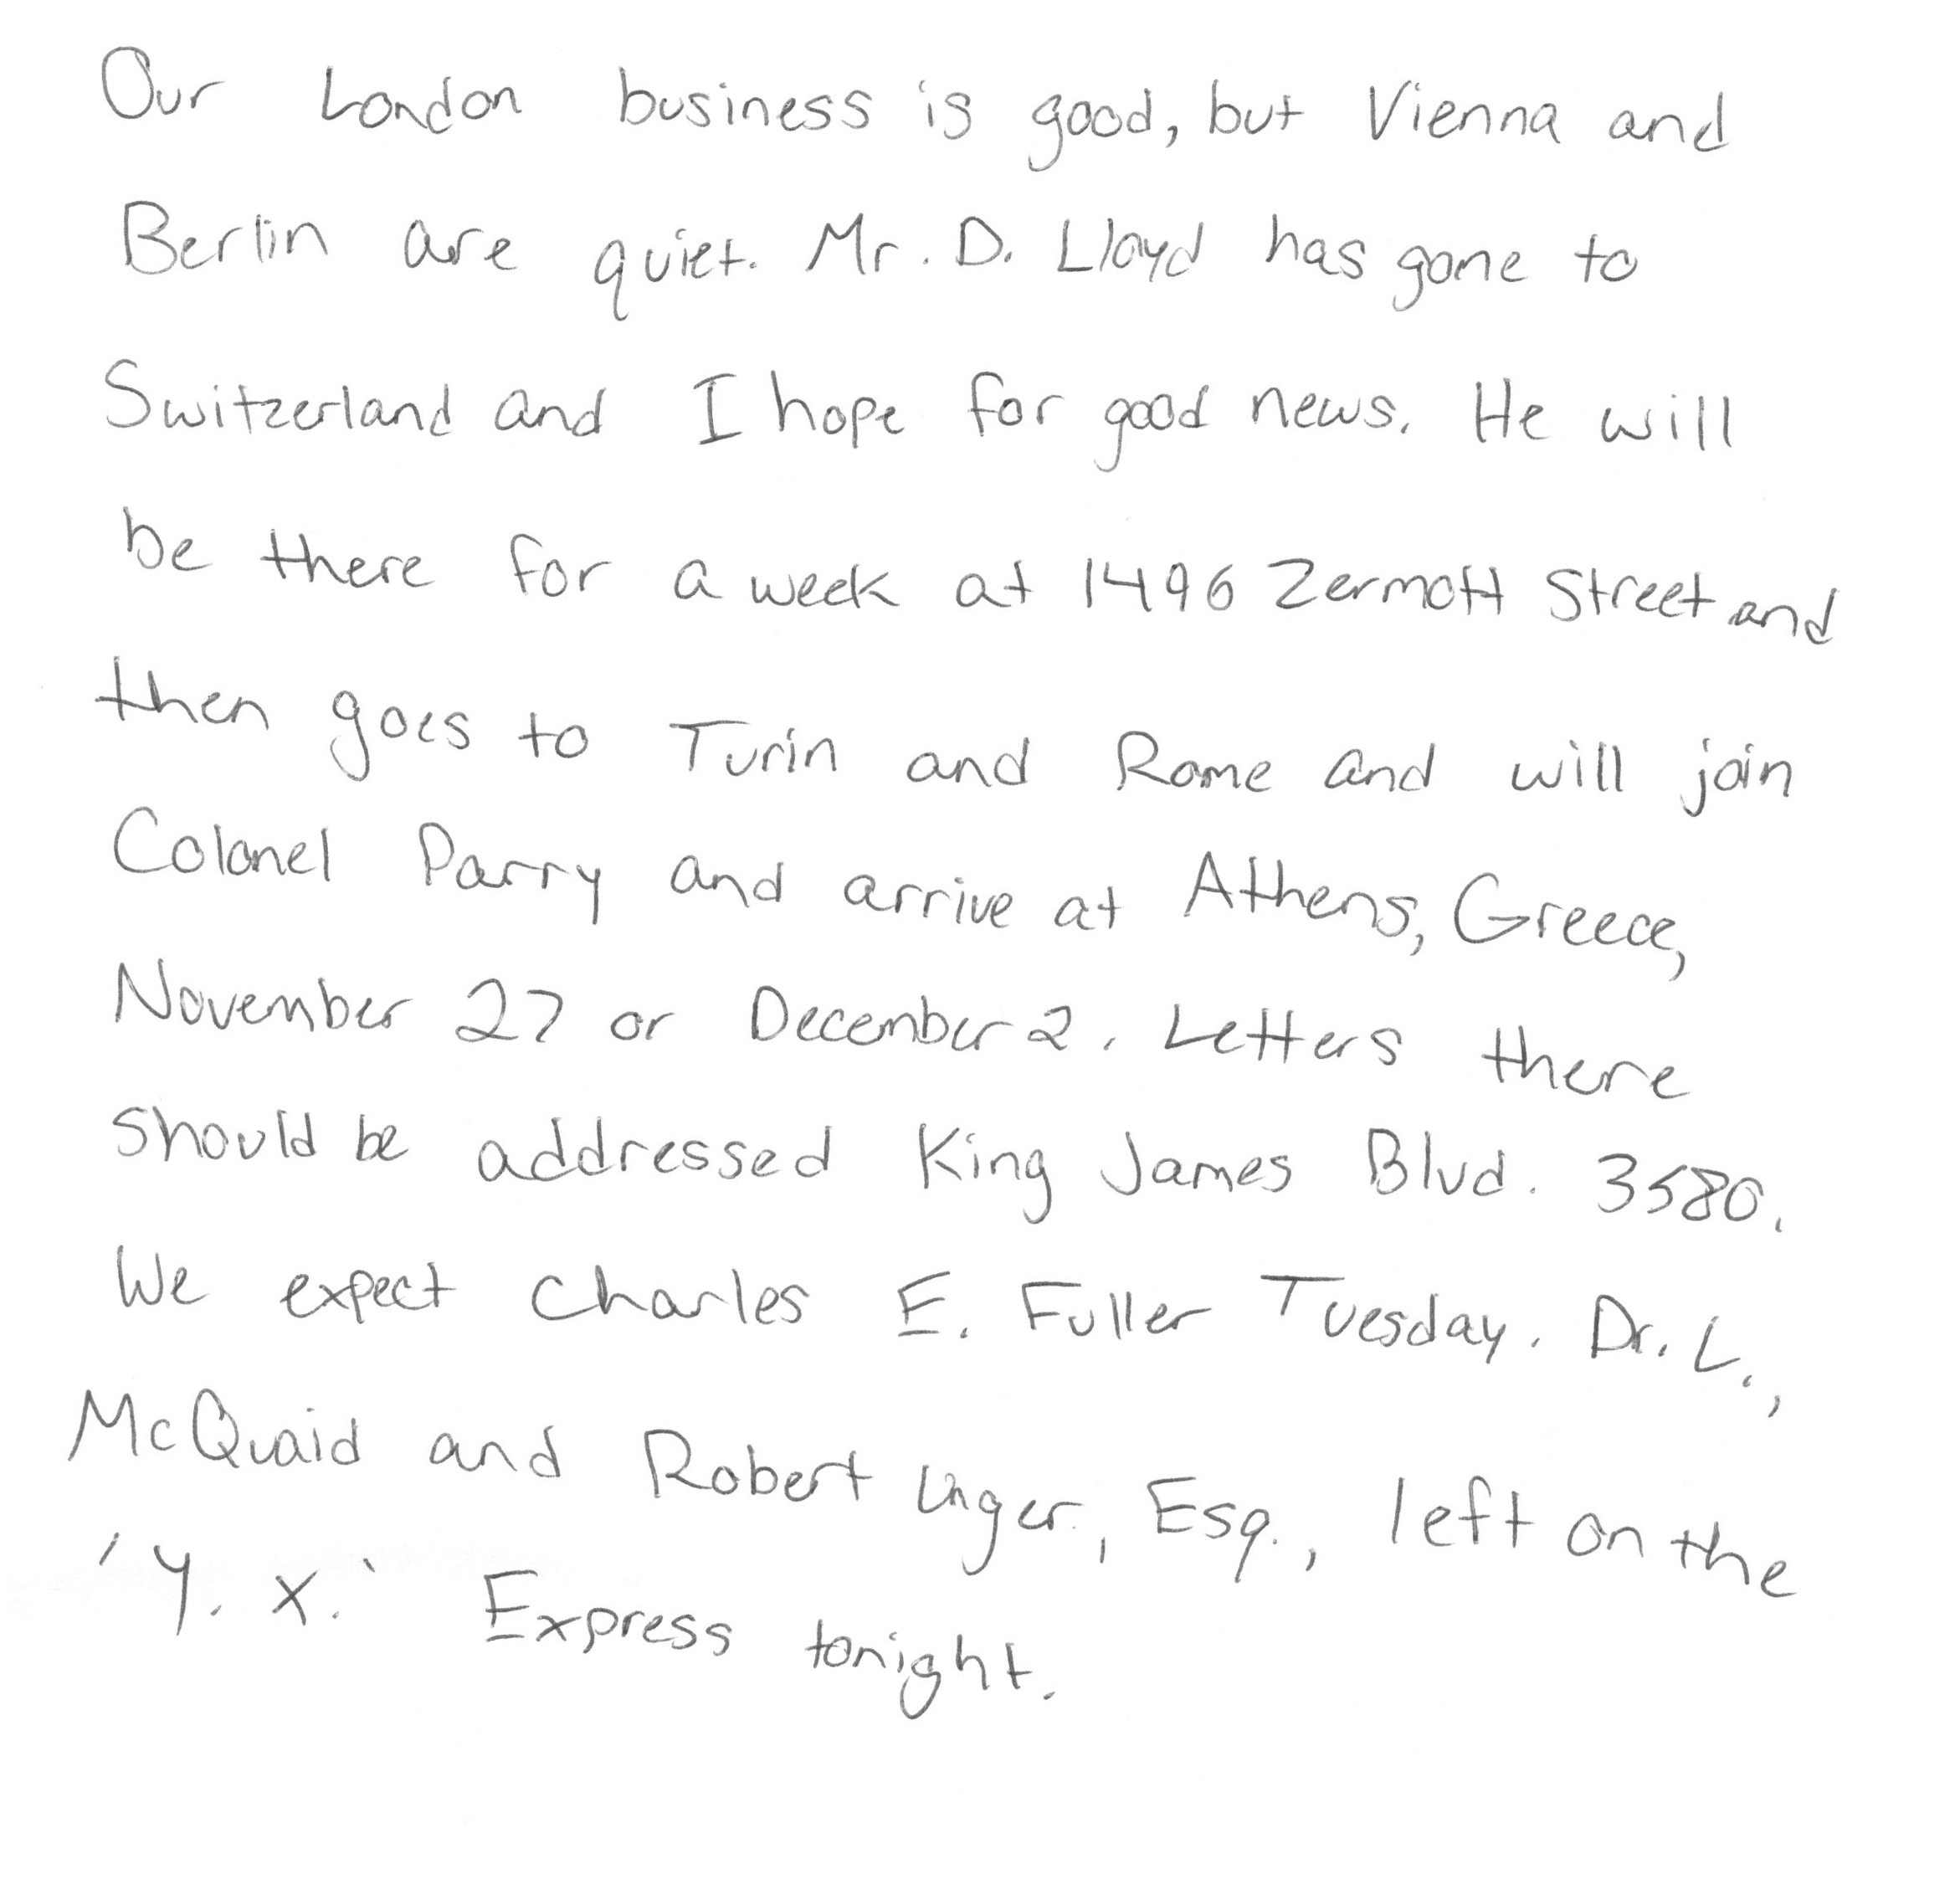 Our London business is good, but Vienna and
Berlin are quiet. Mr. D. Lloyd has gone to
Switzerland and I hope for good news. He will
be there for a week at 1496 Zermott Street and
then goes to Turin and Rome and will join
Colonel Parry and arrive at Athens, Greece,
November 27 or December 2. Letters there
should be addressed King James Blvd. 3580.
We expect Charles E. Fuller Tuesday. Dr. L.,
McQuaid and Robert Unger, Esq., left on the
'Y. X.' Express tonight.